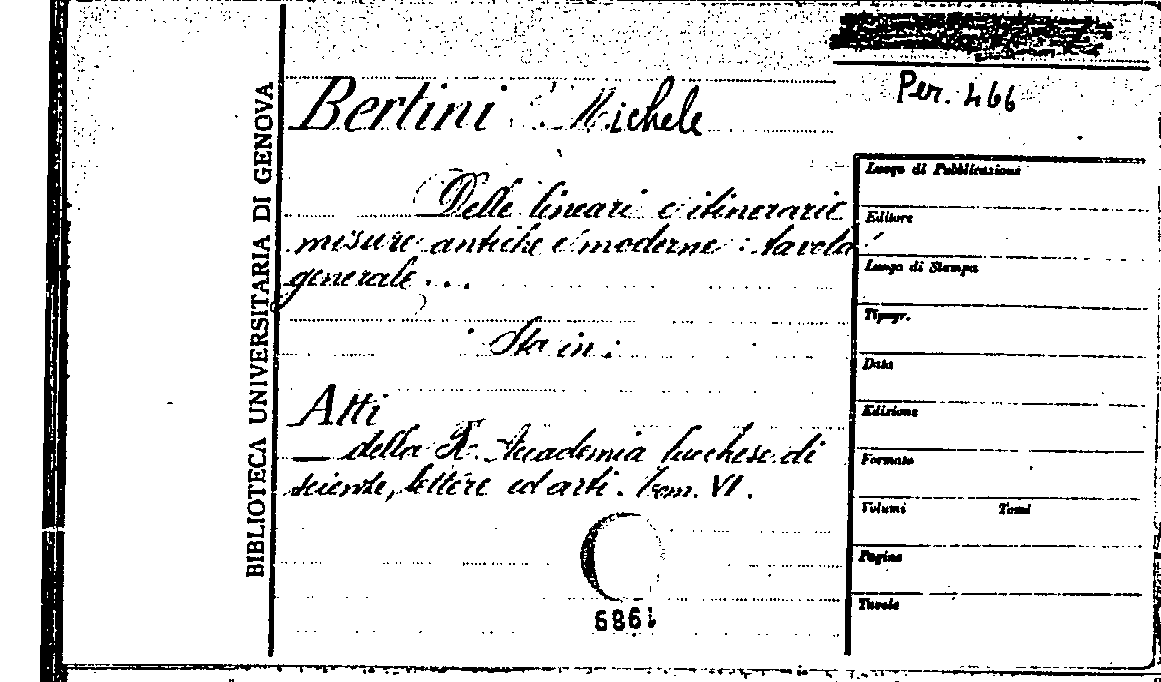 BIBLIOTECA UNIVERSITARIA DI GENOVA
Per. 466
Bertini Michele
Delle lineari e itinerarie
misure antiche e moderne : tavola
generale...
Sta in:
Atti
— della R. Accademia lucchese di
scienze, lettere ed arti. Tom. VI.
1989
Luogo di Pubblicazione
Editore
Luogo di Stampa
Tipogr.
Data
Edizione
Formato
Volumi Tomi
Pagine
Tavole